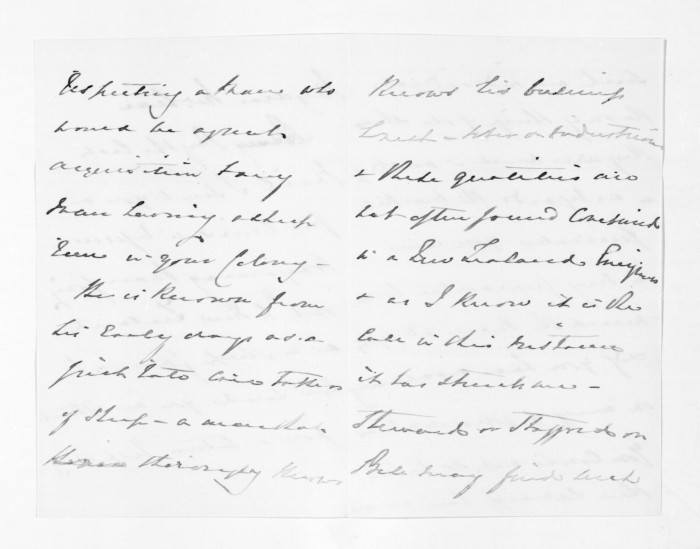 respecting a man who
would be a great
acquisition to any
man having a sheep
run in your Colony -
He is known from
his early days as a
first rate care taker
of sheep - a man that
thoroughly knows
knows his business
honest - sober & industrious
& these qualities are
not often found combined
in a New Zealand
& as I know it is the
case in this instance
it has struck me -
Steward or Stafford or
Bell may find such